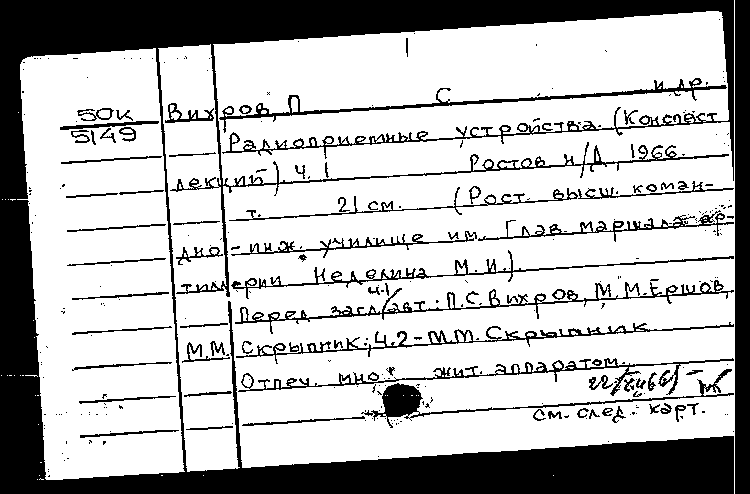 50к Вихров, П С и др.
5149
Радиоприемные устройства. (Конспект
лекций). Ч. 1 Ростов н/Д, 1966.
т. 21 см. (Рост. высш. коман-
дно-инж. училище им. Глав. маршала ар-
тиллерии Неделина М.И.).
Перед загл. ч.1/авт.: П.С. Вихров, М.М. Ершов,
М.М. Скрыпник; ч.2 - М.М. Скрыпник
Отпеч. множит. аппаратом.
см. след. карт.